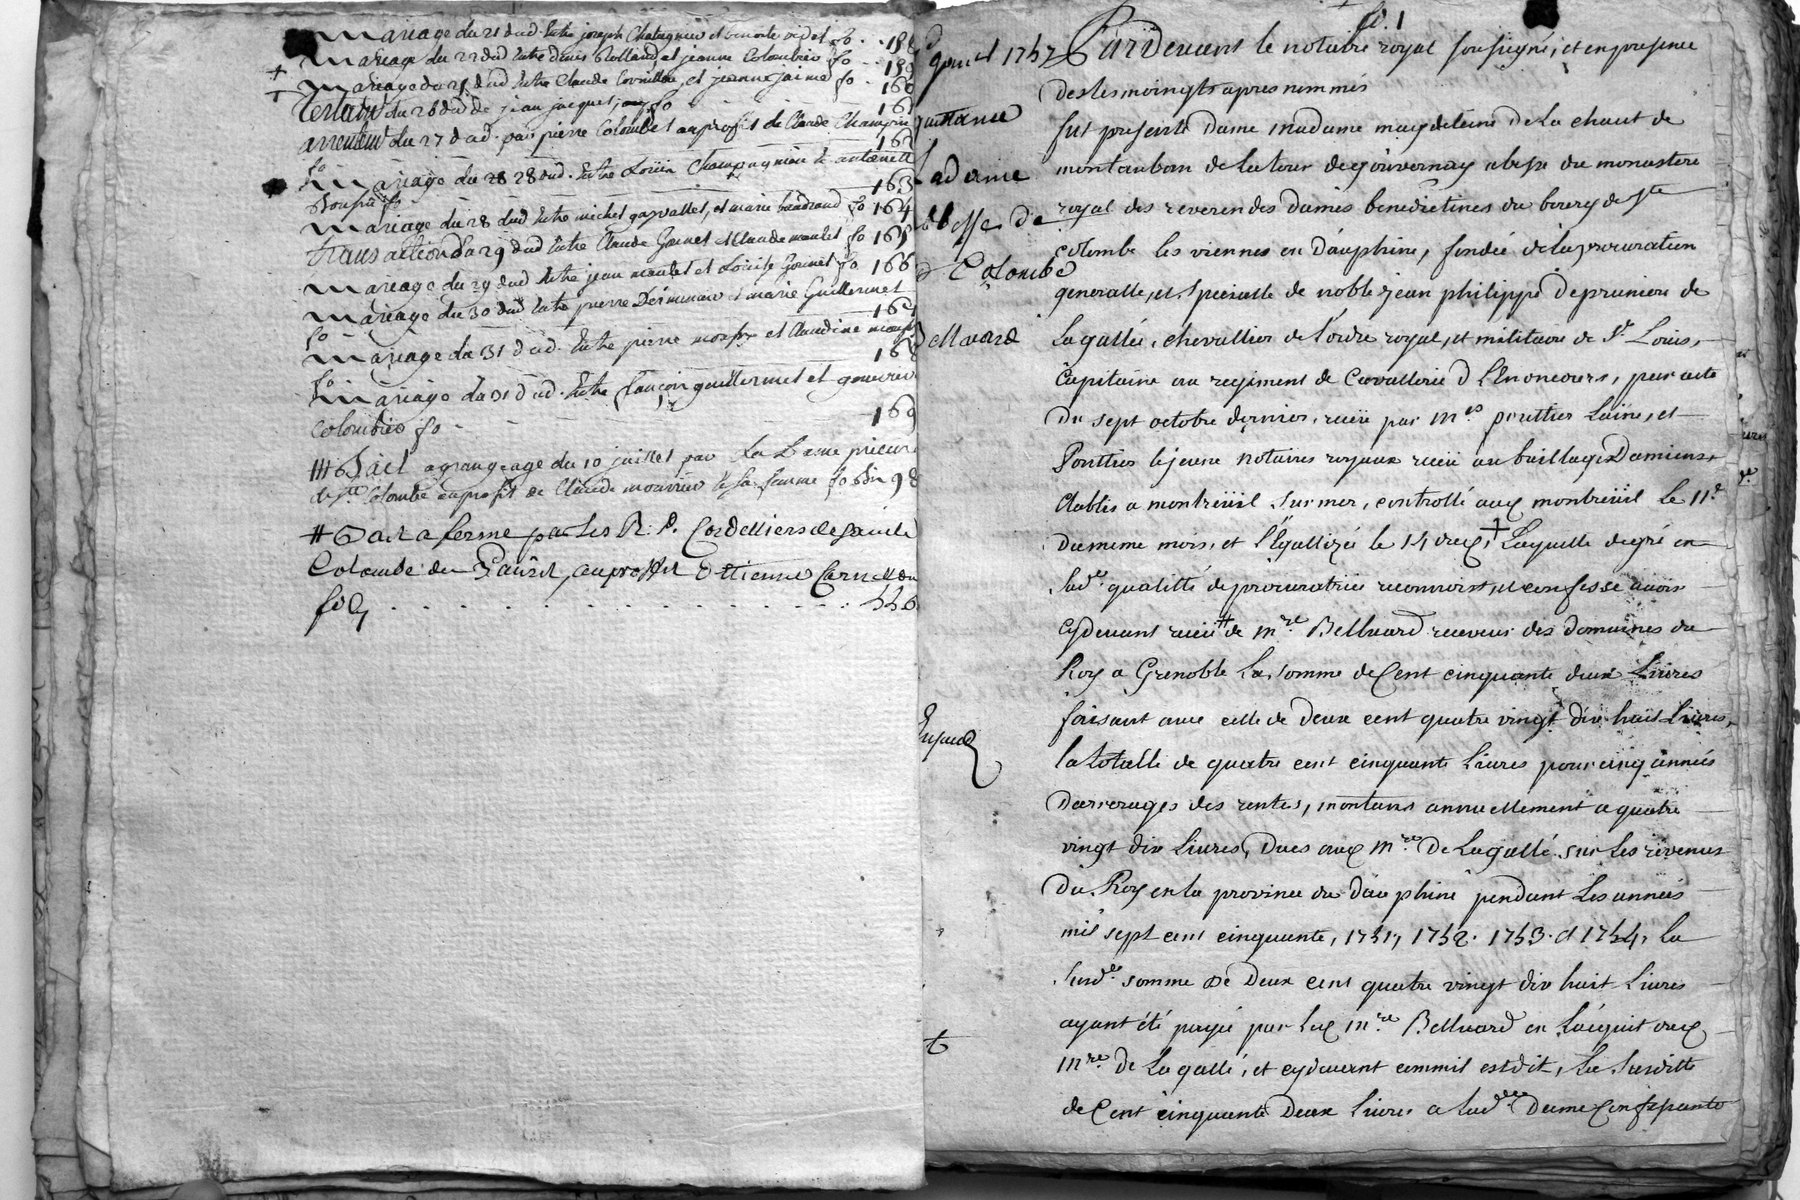 Mariage du 21 dud. Entre joseph Chatagnier et benoite videt fo. 158
Mariage du 22 dud Entre denis Rolland, et jeanne Colombier fo 159
+ Mariage du 25 dud Entre Claude Cornillon et jeanne jaime fo. 160
+ Testamt du 26 dud de jean jacques jany fo 161
arrentemt du 27 dud. par pierre Colombet au profit de Claude Champagn
fo 162
Mariage du 28 dud. Entre Champagnion et antoinette
fo 163
Mariage du 28 dud Entre michel garvallet, et marie baudrand fo 164
transaction du 29 dud Entre Claude Gonnet et Claude moulet fo 165
Mariage du 29 dud Entre jean moulet et Loüise Gonnet fo 166
Mariage du 30 dud Entre pierre et marie Guillermet
fo 167
Mariage du 31 dud. Entre pierre et Claudine
fo 168
Mariage du 31 dud. Entre françois guillermet et genevieve
Colombier fo - - 169
Bail a grangeage du 10 juillet par La Dame prieure
de Ste Colombe au profit de Claude mounier & sa femme fo 98
# Bail a ferme par Les R. P. Cordelliers de sainte
Colombe au proffit dEttienne
fo
fo. 1
janet 1757
quittance
Madame
abbesse de
Ste Colombe
Belluard
Expedié
t
Pardevant le notaire royal soussigné, et en presence
des tesmoingts apres nommés
fut presente Dame madame magdeleine de La chaut de
montauban de la tour de gouvernay abesse du monastere
royal des reverendes dames benedictines du bourg de Ste
colombe les viennes en dauphiné, fondée de la procuration
generalle, et specialle de noble jean philippe de prunier de
Lagallée, chevallier de l'ordre royal, et militaire de St Louis,
Capitaine au regiment de Cavallerie d'Enoncourt, par acte
du sept octobre dernier, receu par mes pouttier Lainé, et
Pouttier lejeune notaires royaux receu au baillage D'amiens,
etablis a montreüil sur mer, controllé audt montreüil le 11e
du meme mois, et légallizée le 14 dudt, + Laquelle de gré en
sade qualitté de procuratrice reconnoist, et confesse avoir
cydevant receu # de mre Belluard receveur des domaines du
Roy a Grenoble La somme de Cent cinquante deux Livres
faisant avec celle de deux cent quatre vingt dix huit Livres,
la totalle de quatre cent cinquante Livres pour cinq années
darrerages des rentes, montans annuellement a quatre
vingt dix Livres, Dues audt mre De Lagallé sur Les revenus
du Roy en la province du dauphiné pendant Les années
mil sept cent cinquante, 1751, 1752. 1753. et 1754, La
susde somme de Deux cent quatre vingt dix huit Livres
ayant été payée par Ledt mre Belluard en Lacquit dudt
mre de Lagallé, et cydevant commil est dit, La susditte
de Cent cinquante Deux Livres a Lade Dame